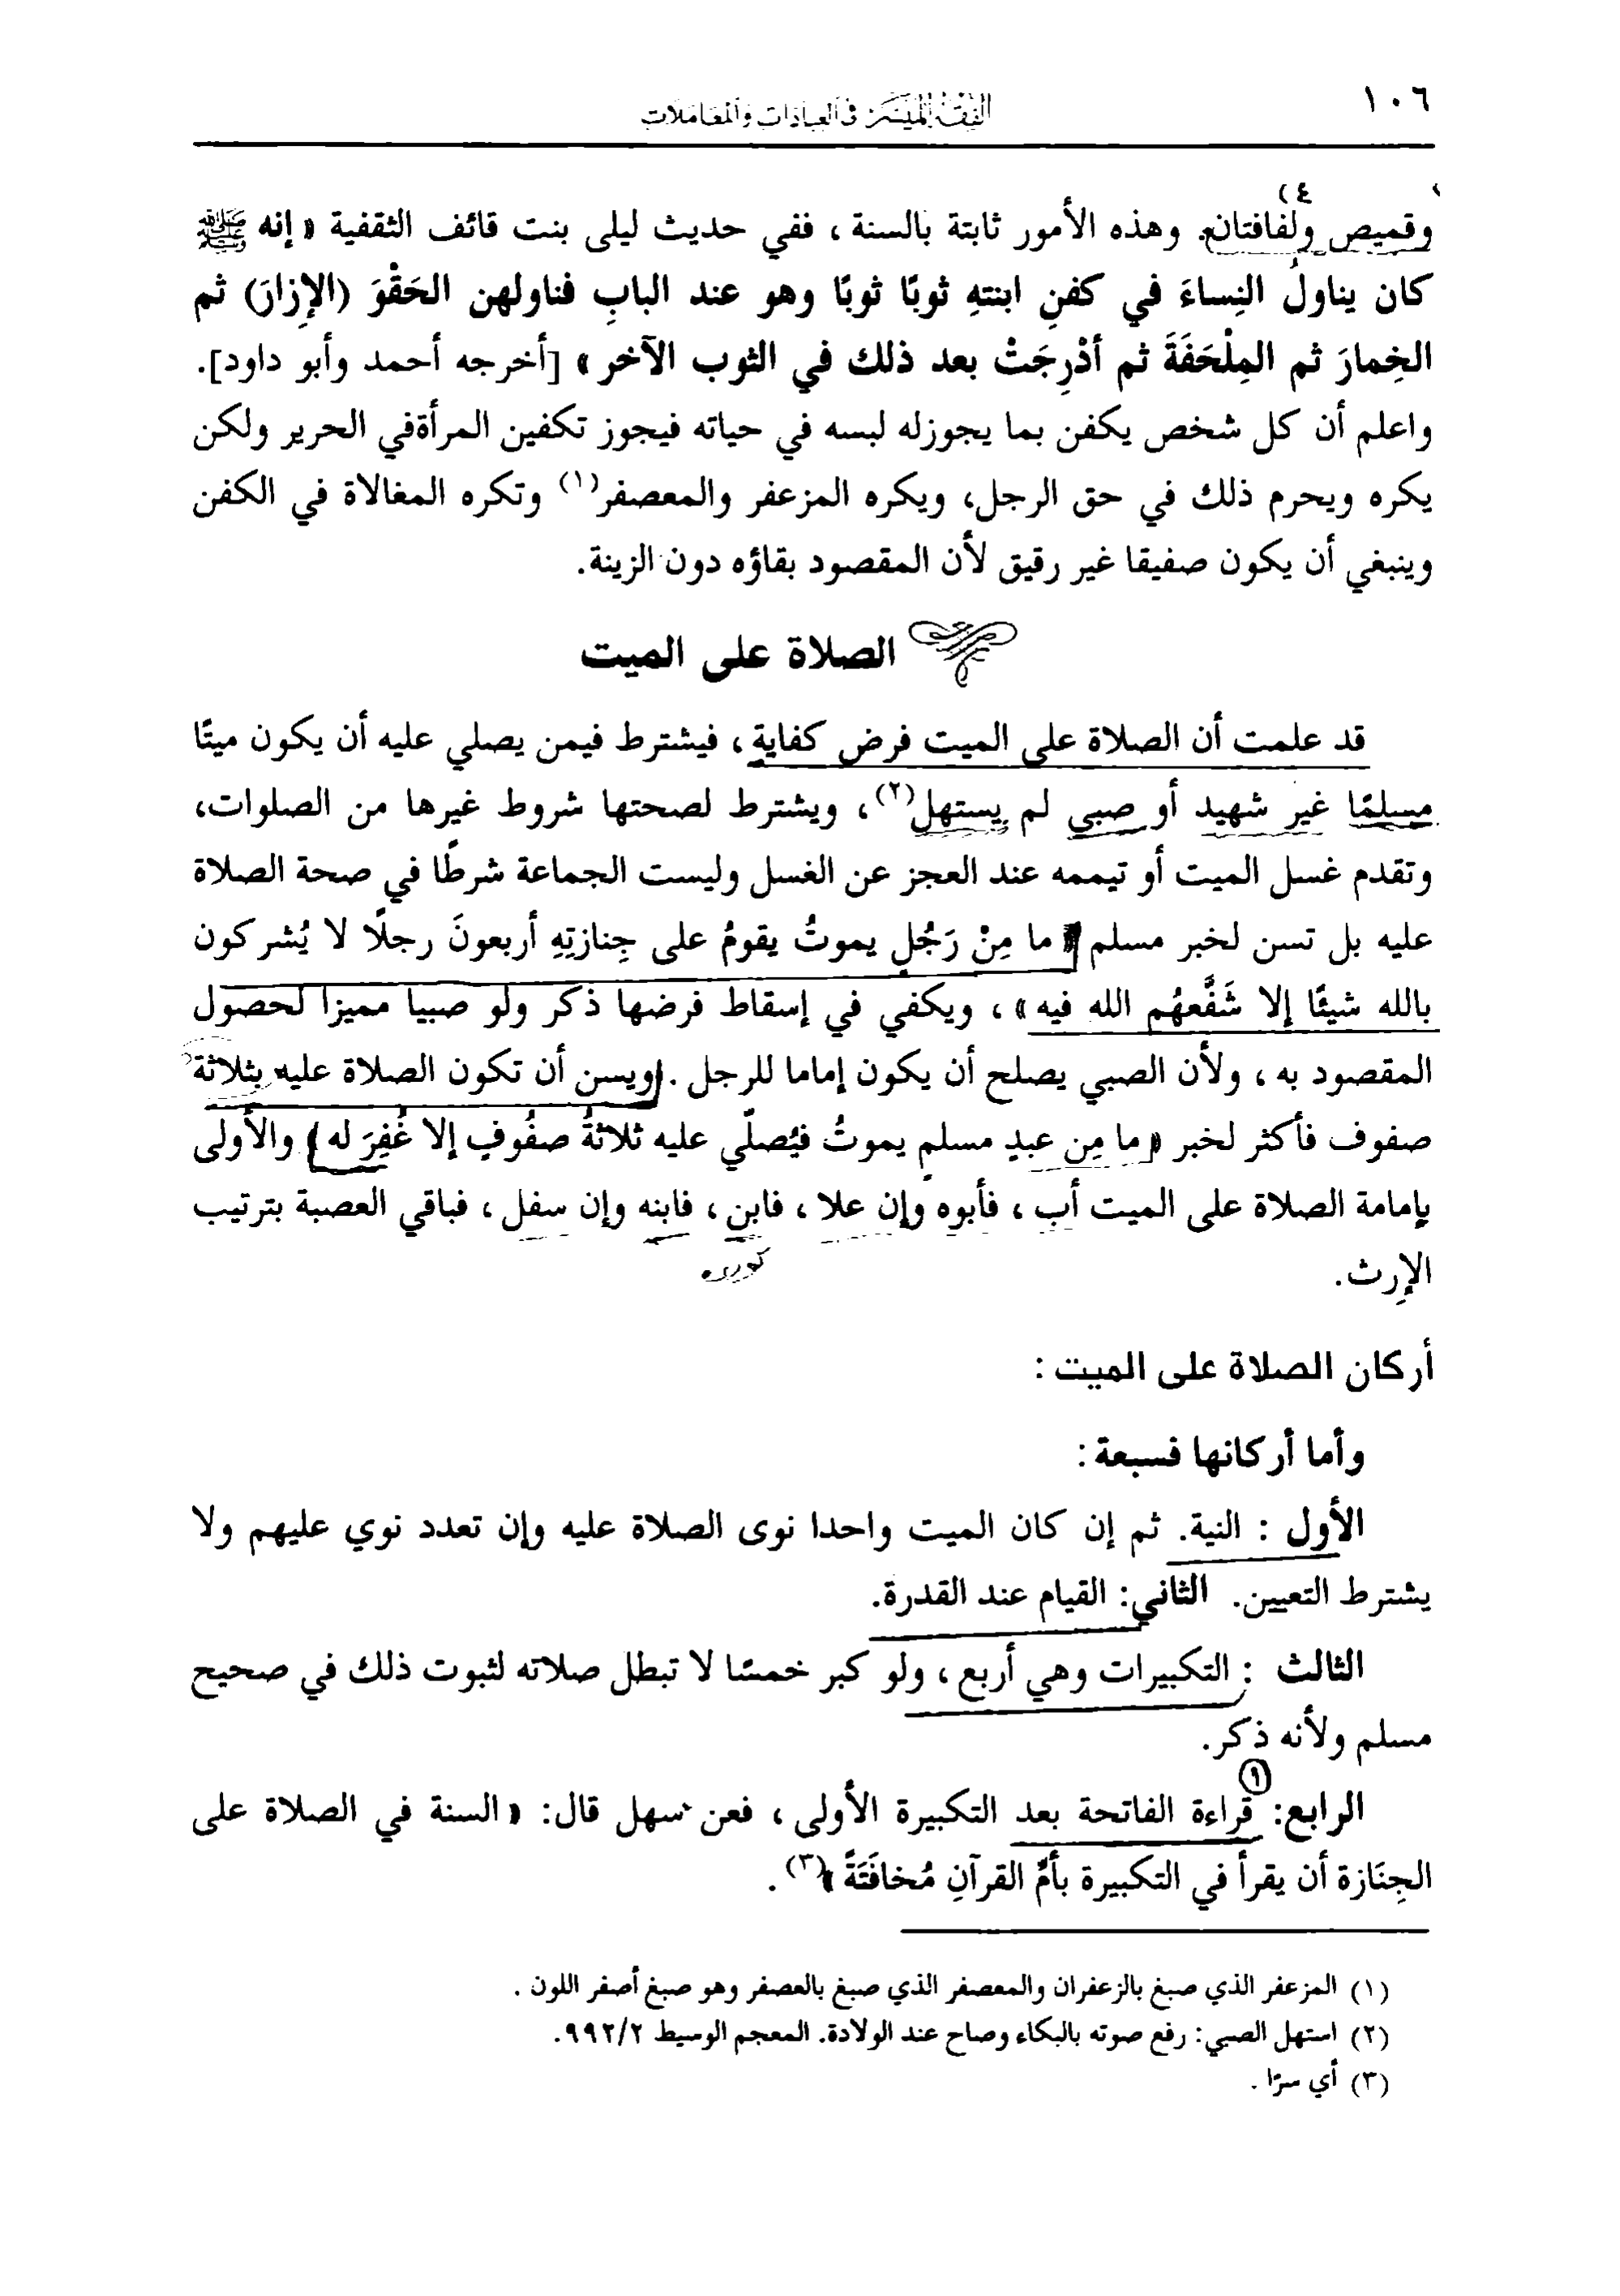 ١٠٦
الفقه الميسر في العبادات والمعاملات
(٤
وقميص ولفافتان. وهذه الأمور ثابتة بالسنة ، ففي حديث ليلى بنت قائف الثقفية « إنه ﷺ
كان يناولُ النِساءَ في كفنِ ابنتهِ ثوبًا ثوبًا وهو عند البابِ فناولهن الحَقْوَ (الإزارَ) ثم
الخِمارَ ثم المِلْحَفَةَ ثم أدْرِجَتْ بعد ذلك في الثوب الآخر » [أخرجه أحمد وأبو داود].
واعلم أن كل شخص يكفن بما يجوزله لبسه في حياته فيجوز تكفين المرأةفي الحرير ولكن
يكره ويحرم ذلك في حق الرجل، ويكره المزعفر والمعصفر(١) وتكره المغالاة في الكفن
وينبغي أن يكون صفيقا غير رقيق لأن المقصود بقاؤه دون الزينة.
الصلاة على الميت
قد علمت أن الصلاة على الميت فرض كفاية ، فيشترط فيمن يصلي عليه أن يكون ميتًا
مسلمًا غير شهيد أو صبي لم يستهل(٢) ، ويشترط لصحتها شروط غيرها من الصلوات،
وتقدم غسل الميت أو تيممه عند العجز عن الغسل وليست الجماعة شرطًا في صحة الصلاة
عليه بل تسن لخبر مسلم « ما مِنْ رَجُلٍ يموتُ يقومُ على جِنازتِهِ أربعونَ رجلًا لا يُشركون
بالله شيئًا إلا شَفَّعهُم الله فيه» ، ويكفي في إسقاط فرضها ذكر ولو صبيا مميزا لحصول
المقصود به ، ولأن الصبي يصلح أن يكون إماما للرجل . ويسن أن تكون الصلاة عليه بثلاثة
صفوف فأكثر لخبر « ما مِن عبدٍ مسلمٍ يموتُ فيُصلّي عليه ثلاثةُ صفُوفٍ إلا غُفِرَ له » والأولى
بإمامة الصلاة على الميت أب ، فأبوه وإن علا ، فابن ، فابنه وإن سفل ، فباقي العصبة بترتيب
الإرث.
أركان الصلاة على الميت :
وأما أركانها فسبعة :
الأول : النية. ثم إن كان الميت واحدا نوى الصلاة عليه وإن تعدد نوي عليهم ولا
يشترط التعيين. الثاني: القيام عند القدرة.
الثالث : التكبيرات وهي أربع ، ولو كبر خمسًا لا تبطل صلاته لثبوت ذلك في صحيح
مسلم ولأنه ذكر.
١
الرابع: قراءة الفاتحة بعد التكبيرة الأولى ، فعن سهل قال: « السنة في الصلاة على
الجِنَازة أن يقرأ في التكبيرة بأمِّ القرآنِ مُخافَتَةً »(٣) .
(١) المزعفر الذي صبغ بالزعفران والمعصفر الذي صبغ بالعصفر وهو صبغ أصفر اللون .
(٢) استهل الصبي: رفع صوته بالبكاء وصاح عند الولادة. المعجم الوسيط ٩٩٢/٢.
(٣) أي سرًا .